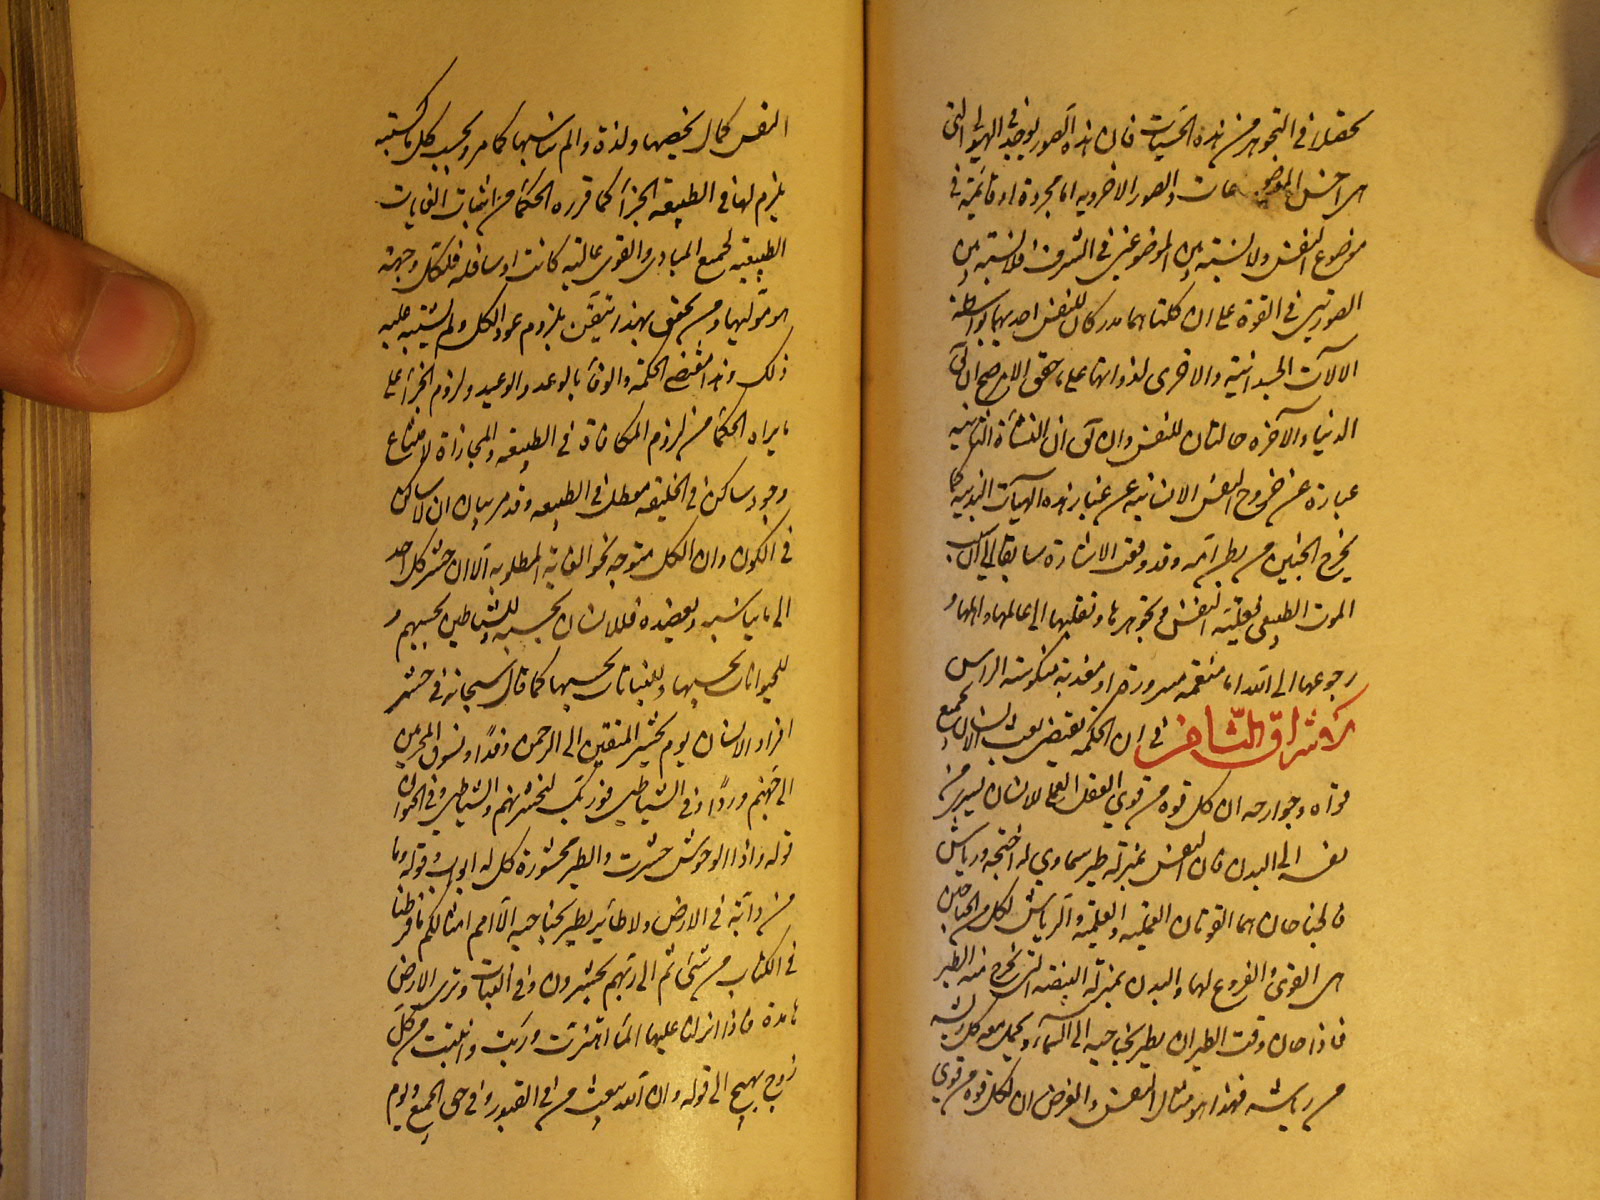 يحصلان في التجوهر من هذه الحيثيات فان هذه الصور يوجد في الهيولى التي
هي اخس الموضوعات والصور الاخروية اما مجردة او قائمة في
موضوع النفس ولا نسبة بين الموضوعين في الشرف فلا نسبة بين
الصورتين في القوة على ان كلتاهما مدركان للنفس احديهما بواسطة
الالات الجسدانية والاخرى لذواتها على ما حقق الامر صح ان يق
الدنيا والآخرة حالتان للنفس وان يق ان النشأة الثانية
عبارة عن خروج النفس الانسانية عن غبار هذه الهيآت البدنية كما
يخرج الجنين من بطن امه وقد وقعت الاشارة سابقا الى ان
الموت الطبيعي فعلية النفس وتجوهرها ونقلها الى عالمها والهها و
رجوعها الى الله اما منعمة مسرورة او معذبة منكوسة الراس
الاشراق التاسع في ان الحكمة يقتضي بعث الانسان بجميع
قواه وجوارحه ان كل قوة من قوى العقل العملي للانسان يسري من
نفسه الى البدن فان النفس بمنزلة طير سماوي له اجنحة ورياش
فالجناحان هما القوتان العملية والعلمية والرياش لكل من الجناحين
هي القوى والفروع لها والبدن بمنزلة البيضة التي يخرج منه الطير
فاذا حان وقت الطيران يطير بجناحيه الى السماء ويحمل معه كل ريشة
من رياشه فهذا هو مثال النفس والغرض ان لكل قوة من قوى
النفس كمال يخصها ولذة والم يناسبها كما مر وبحسب كل ما كسبته
يلزم لها في الطبيعة الجزاء كما قرره الحكماء من اثبات الغايات
الطبيعية لجميع المبادي والقوى عالية كانت او سافلة فلكل وجهة
هو موليها ومن تحقق بهذا تيقن بلزوم عود الكل ولم يشتبه عليه
ذلك وهذا مقتضى الحكمة والوفاء بالوعد والوعيد ولزوم الجزاء على
ما يراه الحكماء من لزوم المكافاة في الطبيعة والمجازاة لامتناع
وجود ساكن في الخليقة معطل في الطبيعة وقد مر بيان ان لا ساكن
في الكون وان الكل متوجه نحو الغاية المطلوبة الا ان حشر كل احد
الى ما يناسبه ويعضده فللانسان بحسبه للشياطين بحسبهم و
للحيوانات بحسبها وللنباتات بحسبها كما قال سبحانه في حشر
افراد الانسان يوم نحشر المتقين الى الرحمن وفدا ونسوق المجرمين
الى جهنم وردا وفي الشياطين فوربك لنحشرنهم والشياطين وفي الحيوان
قوله واذا الوحوش حشرت والطير محشورة كل له اواب وقوله وما
من دابة في الارض ولا طائر يطير بجناحيه الا امم امثالكم ما فرطنا
في الكتاب من شيء ثم الى ربهم يحشرون وفي النبات وترى الارض
هامدة فاذا انزلنا عليها الماء اهتزت وربت وانبتت من كل
زوج بهيج الى قوله وان الله يبعث من في القبور وفي حق الجميع ويوم